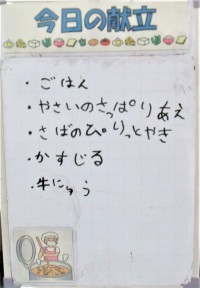 今日の献立
・ごはん
・やさいのさっぱりあえ
・さばのぴりっとやき
・かすじる
・牛にゅう